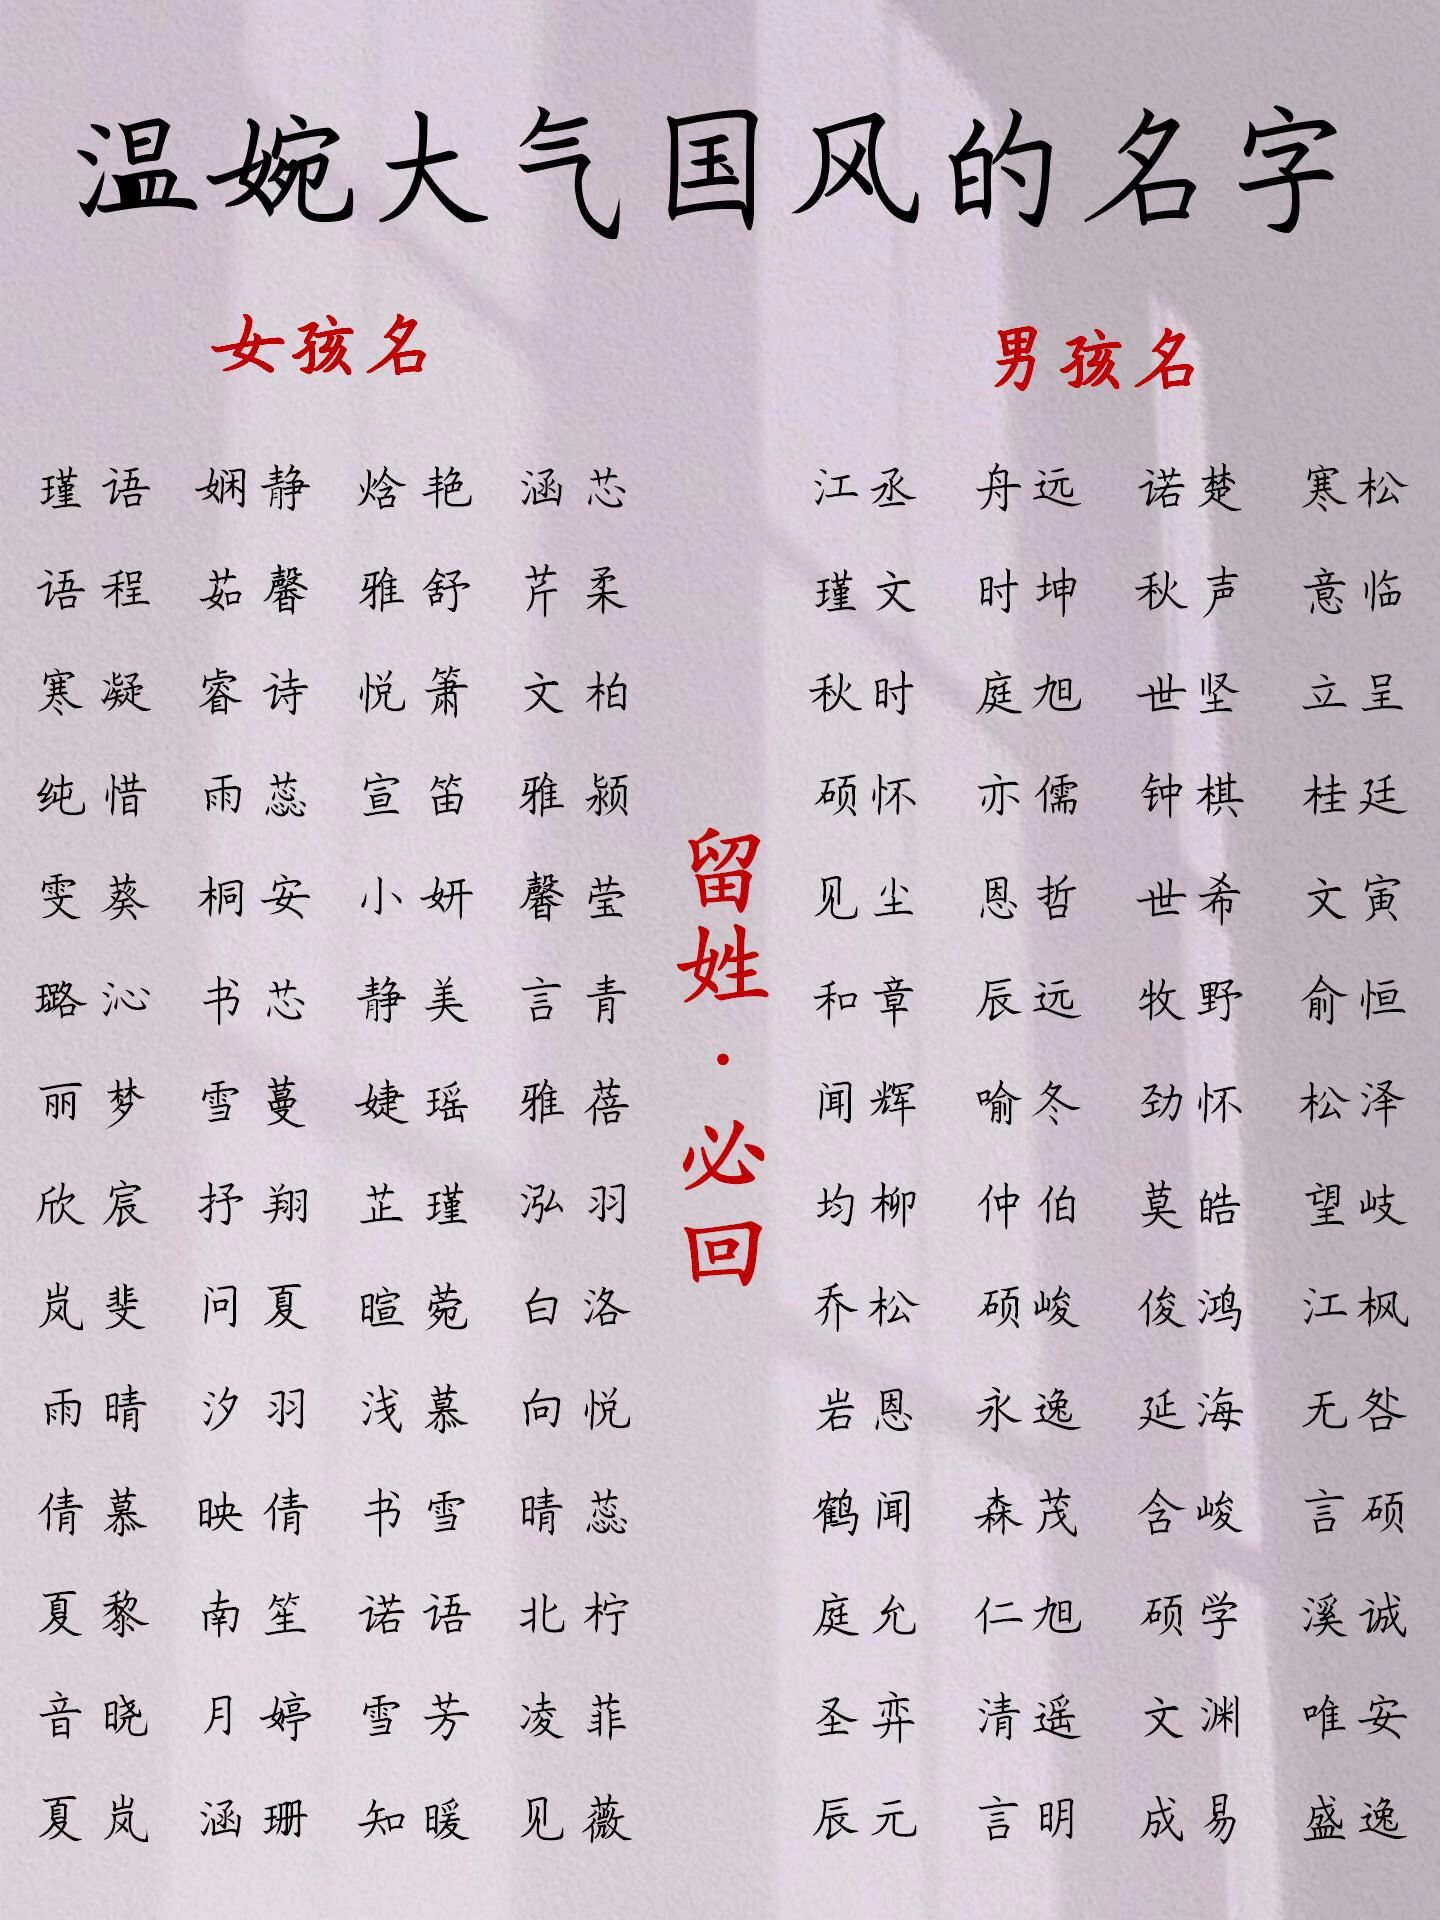 温婉大气国风的名字
女孩名
瑾语 娴静 焓艳 涵芯
语程 茹馨 雅舒 芹柔
寒凝 睿诗 悦箫 文柏
纯惜 雨蕊 宣笛 雅颍
雯葵 桐安 小妍 馨莹
璐沁 书芯 静美 言青
丽梦 雪蔓 婕瑶 雅蓓
欣宸 抒翔 芷瑾 泓羽
岚斐 问夏 暄菀 白洛
雨晴 汐羽 浅慕 向悦
倩慕 映倩 书雪 晴蕊
夏黎 南笙 诺语 北柠
音晓 月婷 雪芳 凌菲
夏岚 涵珊 知暖 见薇
留姓·必回
男孩名
江丞 舟远 诺楚 寒松
瑾文 时坤 秋声 意临
秋时 庭旭 世坚 立呈
硕怀 亦儒 钟棋 桂廷
见尘 恩哲 世希 文寅
和章 辰远 牧野 俞恒
闻辉 喻冬 劲怀 松泽
均柳 仲伯 莫皓 望岐
乔松 硕峻 俊鸿 江枫
岩恩 永逸 延海 无咎
鹤闻 森茂 含峻 言硕
庭允 仁旭 硕学 溪诚
圣弈 清遥 文渊 唯安
辰元 言明 成易 盛逸